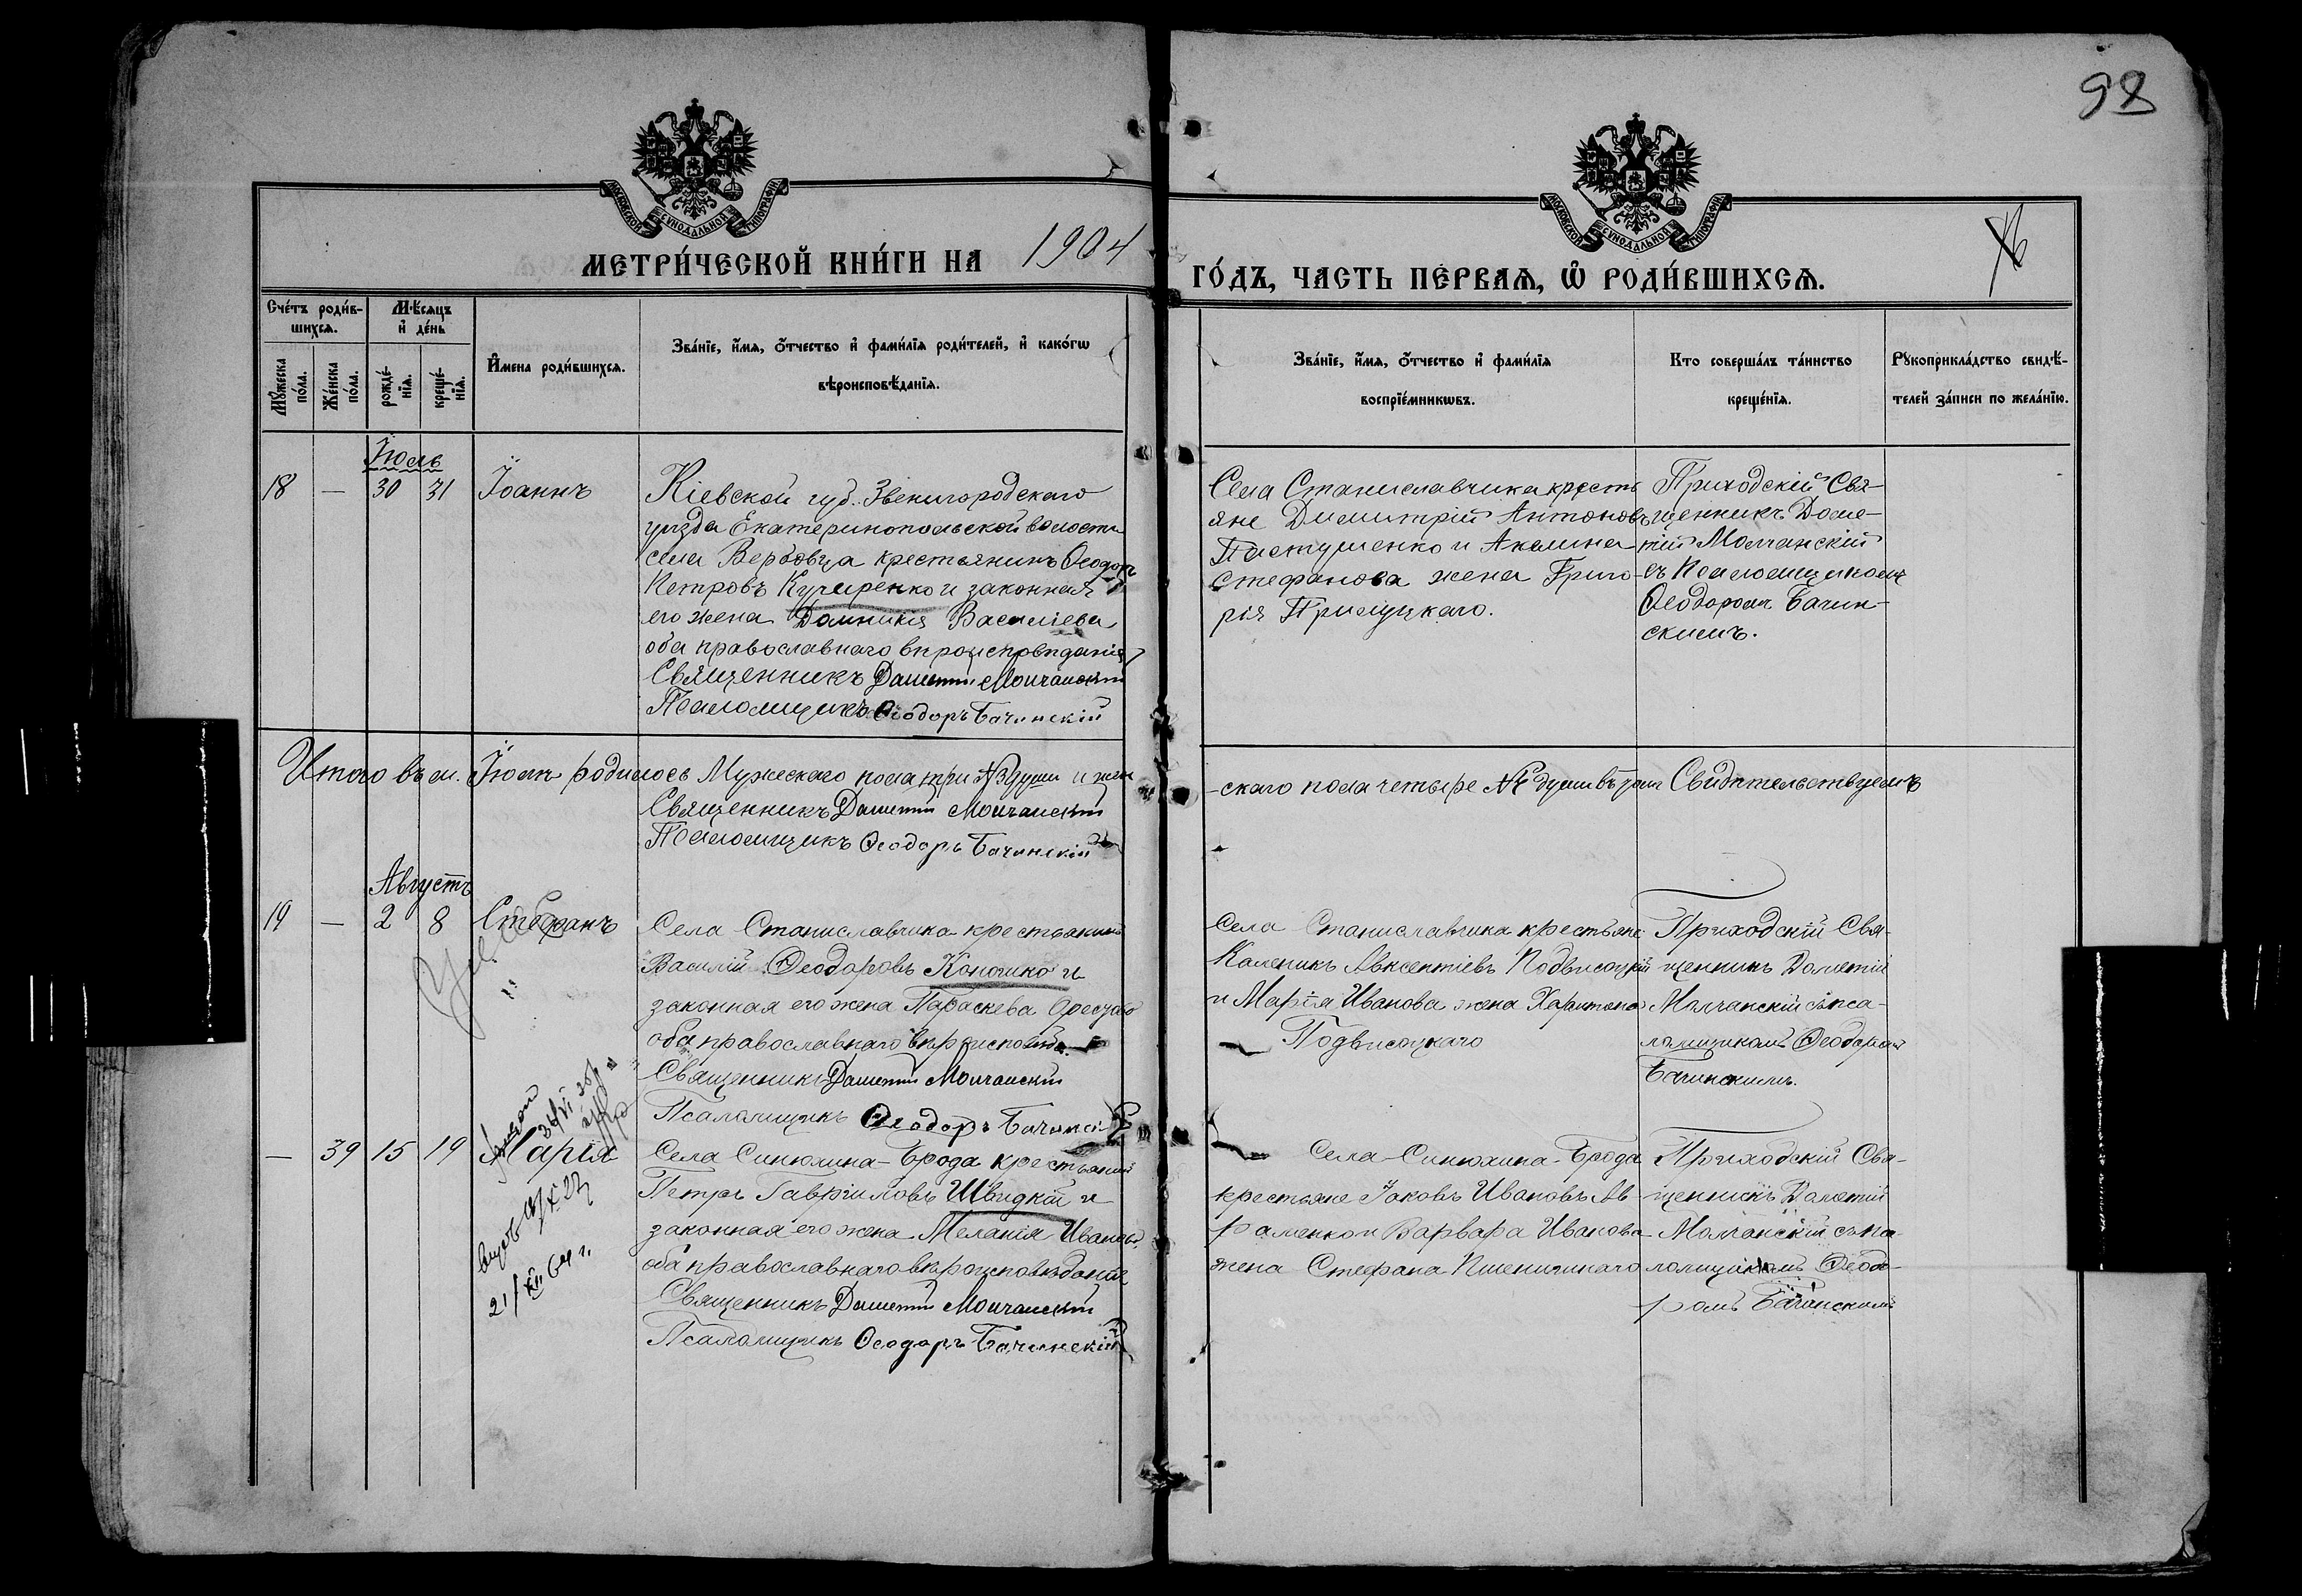 98
МОСКОВСКОЙ СУНОДАЛЬНОЙ ТИПОГРАФІИ
МОСКОВСКОЙ СУНОДАЛЬНОЙ ТИПОГРАФІИ
МЕТРИ́ЧЕСКОЙ КНИ́ГИ НА 1904
ГО́ДЪ, ЧАСТЬ ПЕ́РВАѦ, Ѽ РОДИ́ВШИХСѦ.
Сче́тъ роди́в-
шихсѧ.
Мѣ́сѧцъ
и҆ де́нь
Мꙋ́жеска
по́ла.
Же́нска
по́ла.
рожде́-
нїѧ.
креще́-
нїѧ.
И҆мена роди́вшихсѧ.
Зва́нїе, и҆́мѧ, ѻ҆́тчество и҆ фами́лїѧ роди́телей, и҆ како́гѡ
вѣроисповѣ́данїѧ.
Зва́нїе, и҆́мѧ, ѻ҆́тчество и҆ фами́лїѧ
воспрїе́мникѡвъ.
Кто соверша́лъ та́инство
креще́нїѧ.
Рꙋкоприкла́дство свидѣ́-
телей за́писи по жела́нїю.
Іюль
18 — 30 31 Іоаннъ
Кіевской губ. Звенигородскаго
уѣзда Екатеринопольской волости
села Вербовца крестьянинъ Ѳеодоръ
Петровъ Кучеренко и законная
его жена Домникія Василіева
оба православнаго вѣроисповѣданія
Священникъ Дометій Молчанскій
Псаломщикъ Ѳеодоръ Бачинскій
Села Станиславчика кресть
яне Димитрій Антоновъ
Пастушенко и Акилина
Стефанова жена Григо-
рія Прилуцкаго.
Приходскій Свя-
щенникъ Доме-
тій Молчанскій
съ Псаломщикомъ
Ѳеодоромъ Бачин-
скимъ.
Итого въ м. Іюлѣ родилось Мужескаго пола три № 3 души и жен
-скаго пола четыре № души въ чемъ Свидѣтельствуемъ
Священникъ Дометій Молчанскій
Псаломщикъ Ѳеодоръ Бачинскій
Августъ
19 — 2 8 Стефанъ
Села Станиславчика крестьянинъ
Василій Ѳеодоровъ Кономко и
законная его жена Параскева
оба православнаго вѣроисповѣда.
Священникъ Дометій Молчанскій
Псаломщикъ Ѳеодоръ Бачинскій
Села Станиславчика крестьяне
Каленикъ Авксентіевъ Подвисоцкій
и Марія Иванова жена Харитона
Подвисоцкаго
Приходскій Свя-
щенникъ Дометій
Молчанскій съ пса-
ломщикомъ Ѳеодоромъ
Бачинскимъ.
— 39 15 19 Марія
21/XII 64 г.
Села Синюхина-Брода крестьянинъ
Петръ Гавріиловъ Швидкій и
законная его жена Меланія Иванова
оба православнаго вѣроисповѣданія
Священникъ Дометій Молчанскій
Псаломщикъ Ѳеодоръ Бачинскій
Села-Синюхина-Брода
крестьяне Іаковъ Ивановъ Ав
раменко и Варвара Иванова
жена Стефана Пшеничнаго
Приходскій Свя-
щенникъ Дометій
Молчанскій съ пса
ломщикомъ Ѳеодо-
ромъ Бачинскимъ